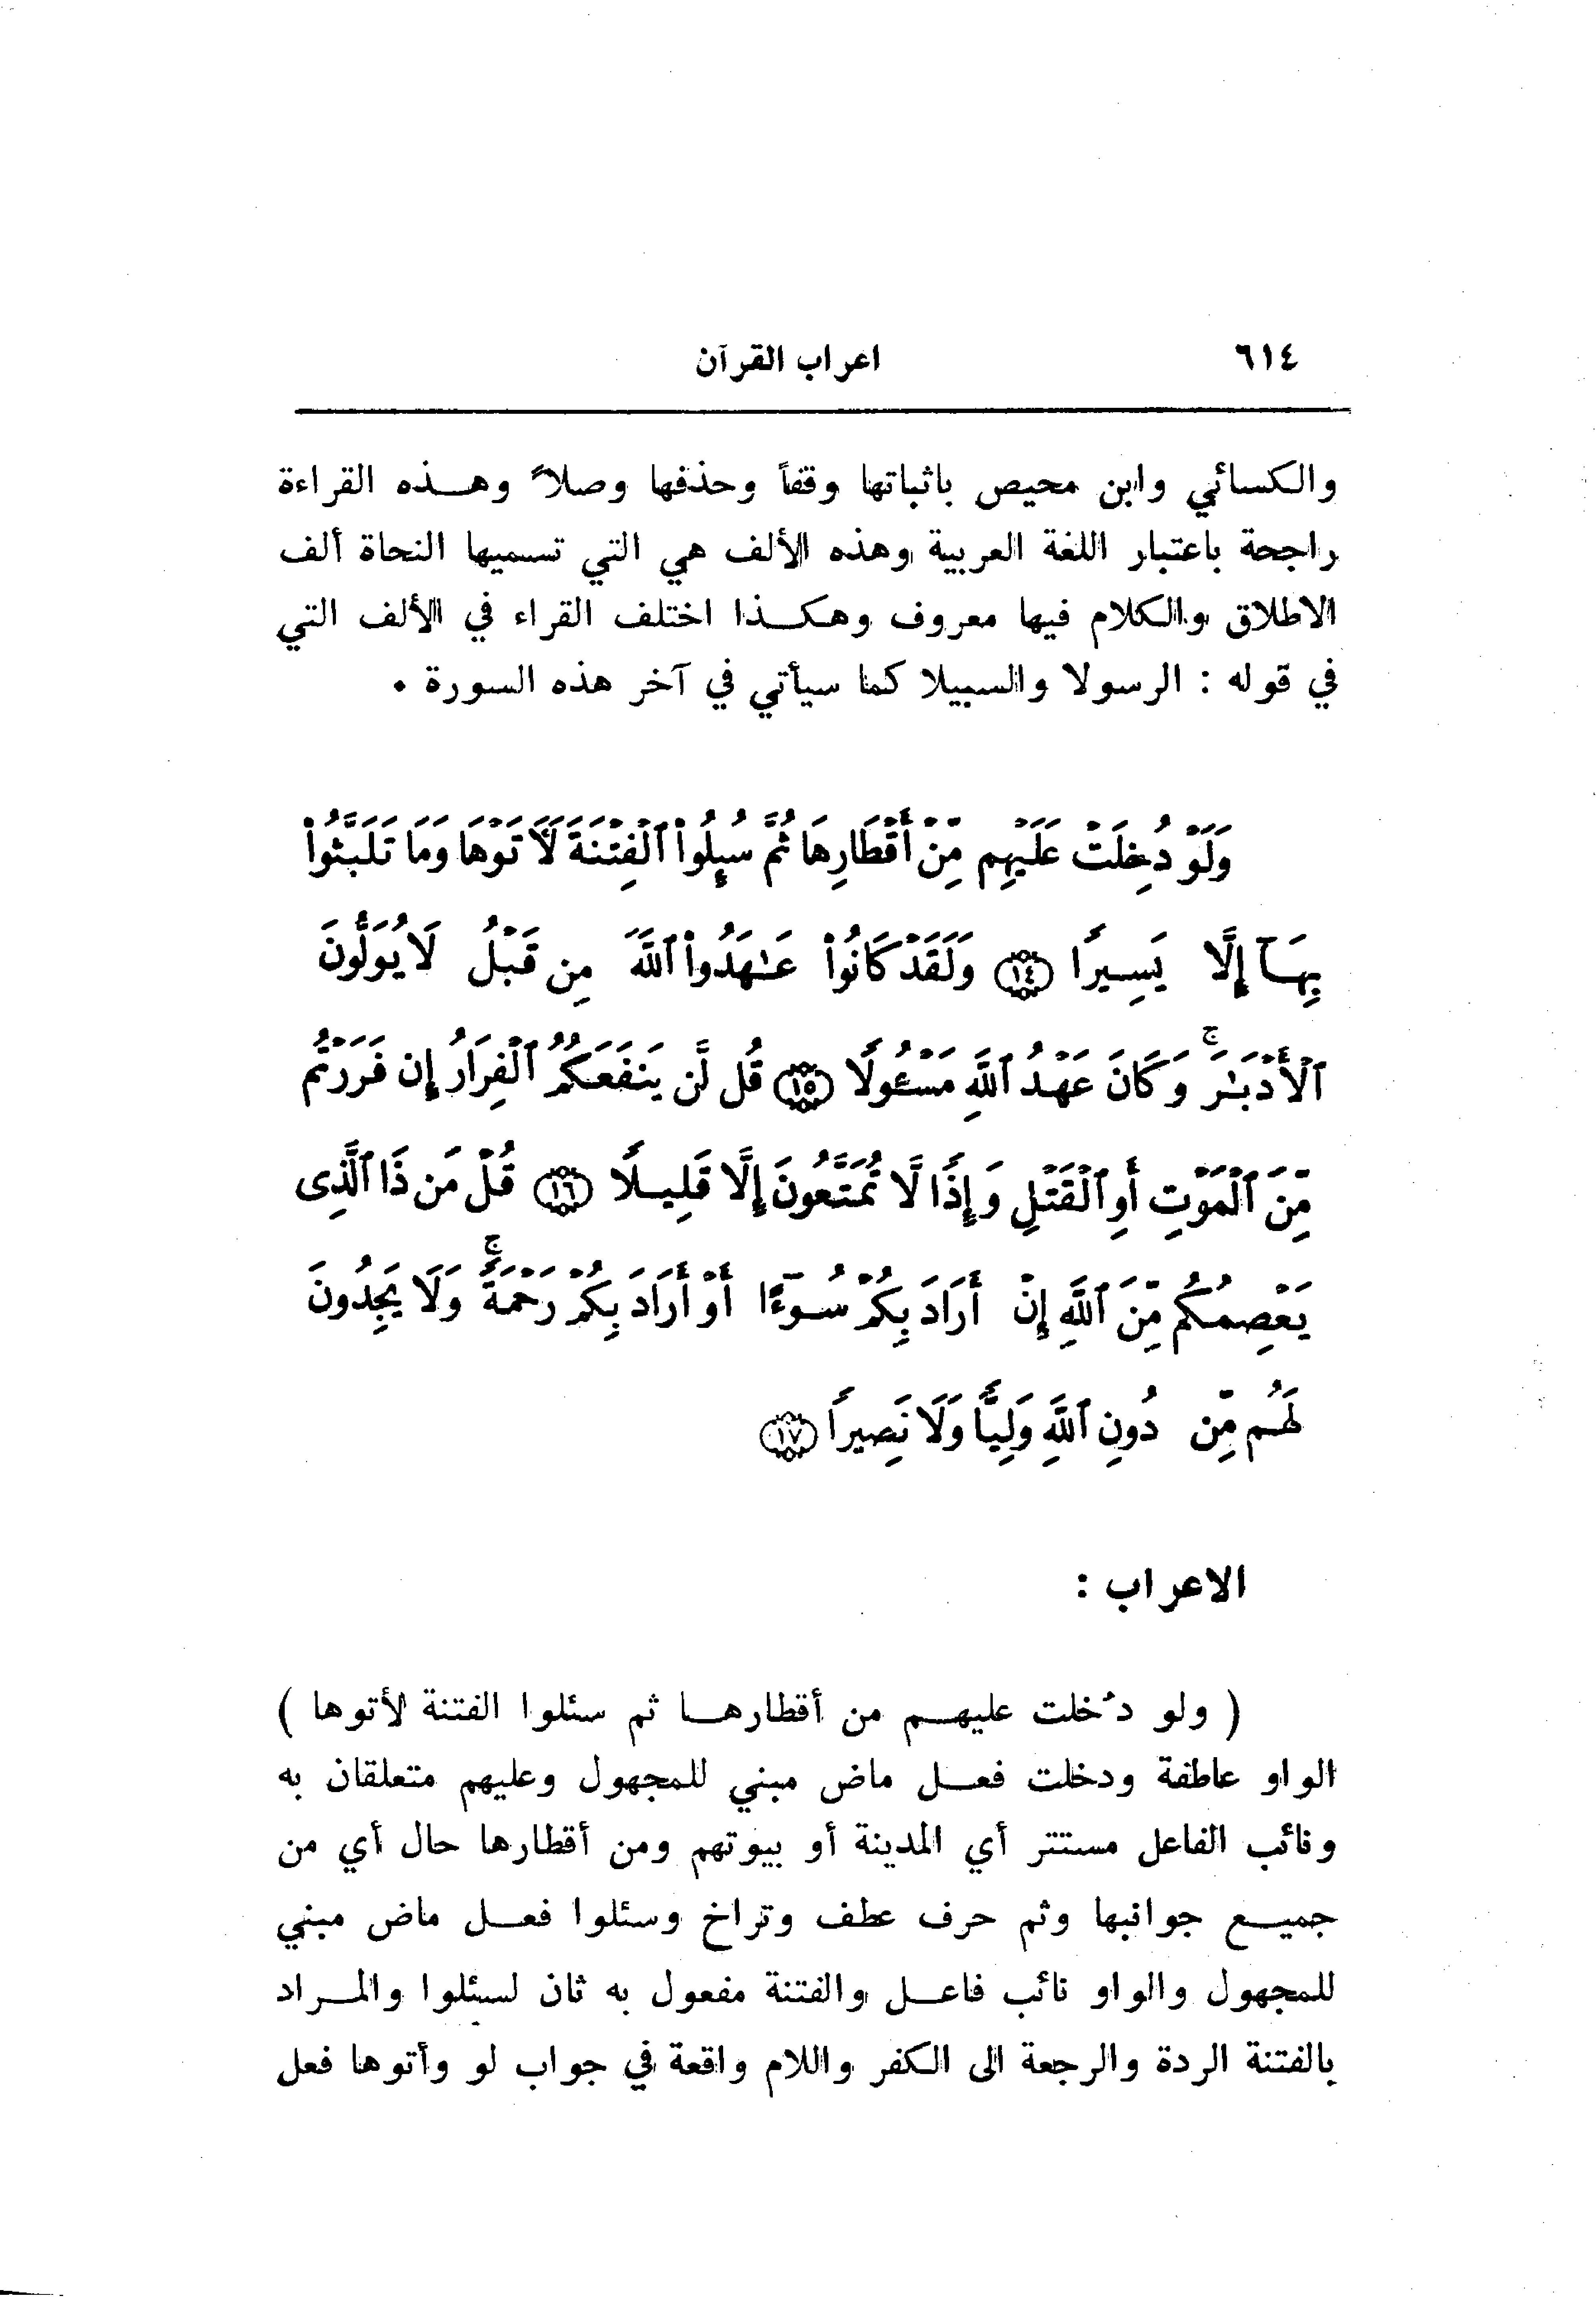 ٦١٤ اعراب القرآن
والكسائي وابن محيص باثباتها وقفاً وحذفها وصلاً وهـــذه القراءة
راجحة باعتبار اللغة العربية وهذه الألف هي التي تسميها النحاة ألف
الاطلاق والكلام فيها معروف وهكـــذا اختلف القراء في الألف التي
في قوله : الرسولا والسبيلا كما سيأتي في آخر هذه السورة ٠
وَلَوْ دُخِلَتْ عَلَيْهِم مِّنْ أَقْطَارِهَا ثُمَّ سُئِلُواْ ٱلْفِتْنَةَ لَأَتَوْهَا وَمَا تَلَبَّثُواْ
بِهَآ إِلَّا يَسِيرًا ١٤ وَلَقَدْ كَانُواْ عَٰهَدُواْ ٱللَّهَ مِن قَبْلُ لَا يُوَلُّونَ
ٱلْأَدْبَٰرَ ۚ وَكَانَ عَهْدُ ٱللَّهِ مَسْئُولًا ١٥ قُل لَّن يَنفَعَكُمُ ٱلْفِرَارُ إِن فَرَرْتُم
مِّنَ ٱلْمَوْتِ أَوِ ٱلْقَتْلِ وَإِذًا لَّا تُمَتَّعُونَ إِلَّا قَلِيلًا ١٦ قُلْ مَن ذَا ٱلَّذِى
يَعْصِمُكُم مِّنَ ٱللَّهِ إِنْ أَرَادَ بِكُمْ سُوٓءًا أَوْ أَرَادَ بِكُمْ رَحْمَةً ۚ وَلَا يَجِدُونَ
لَهُم مِّن دُونِ ٱللَّهِ وَلِيًّا وَلَا نَصِيرًا ١٧
الاعراب :
( ولو دُخلت عليهـــم من أقطارهـــا ثم سئلوا الفتنة لأتوها )
الواو عاطفة ودخلت فعـــل ماض مبني للمجهول وعليهم متعلقان به
ونائب الفاعل مستتر أي المدينة أو بيوتهم ومن أقطارها حال أي من
جميـــع جوانبها وثم حرف عطف وتراخ وسئلوا فعـــل ماض مبني
للمجهول والواو نائب فاعـــل والفتنة مفعول به ثان لسئلوا والمـــراد
بالفتنة الردة والرجعة الى الكفر واللام واقعة في جواب لو وأتوها فعل